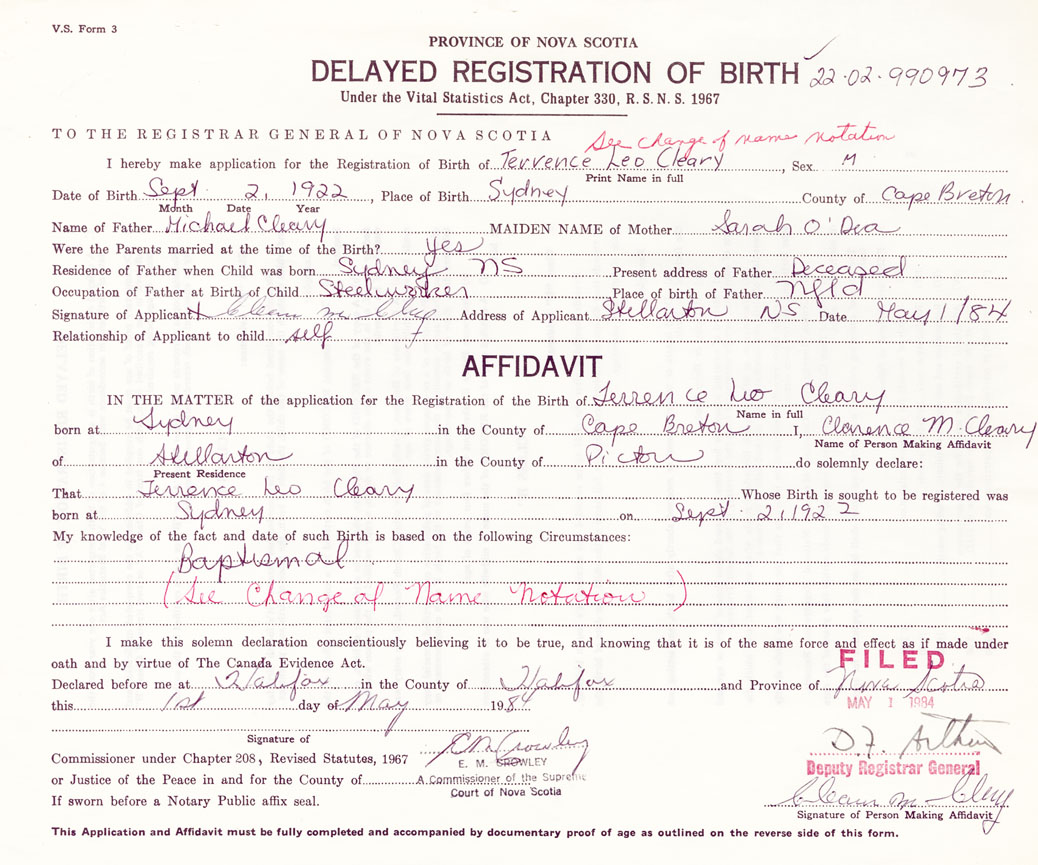 V.S. Form 3
PROVINCE OF NOVA SCOTIA
DELAYED REGISTRATION OF BIRTH 22-02-990973
Under the Vital Statistics Act, Chapter 330, R.S.N.S. 1967
TO THE REGISTRAR GENERAL OF NOVA SCOTIA
See change of name notation
I hereby make application for the Registration of Birth of Terrence Leo Cleary, Sex M
Print Name in full
Date of Birth Sept. 2, 1922, Place of Birth Sydney County of Cape Breton.
Month Date Year
Name of Father Michael Cleary MAIDEN NAME of Mother Sarah O'Dea
Were the Parents married at the time of the Birth? Yes
Residence of Father when Child was born Sydney NS Present address of Father Deceased
Occupation of Father at Birth of Child Steelworker Place of birth of Father Nfld
Signature of Applicant Address of Applicant Stellarton NS Date May 1/84
Relationship of Applicant to child self
AFFIDAVIT
IN THE MATTER of the application for the Registration of the Birth of Terrence Leo Cleary
Name in full
born at Sydney in the County of Cape Breton I, Clarence M. Cleary
Name of Person Making Affidavit
of Stellarton in the County of Pictou do solemnly declare:
Present Residence
That Terrence Leo Cleary Whose Birth is sought to be registered was
born at Sydney on Sept. 2, 1922
My knowledge of the fact and date of such Birth is based on the following Circumstances:
Baptismal
(See Change of Name Notation)
I make this solemn declaration conscientiously believing it to be true, and knowing that it is of the same force and effect as if made under
oath and by virtue of The Canada Evidence Act.
FILED
Declared before me at Halifax in the County of Halifax and Province of Nova Scotia
this 1st day of May 1984
MAY 1 1984
Signature of
Commissioner under Chapter 208, Revised Statutes, 1967
E. M. CROWLEY
or Justice of the Peace in and for the County of A Commissioner of the Supreme
Court of Nova Scotia
If sworn before a Notary Public affix seal.
D.F. Arthur
Deputy Registrar General
Signature of Person Making Affidavit
This Application and Affidavit must be fully completed and accompanied by documentary proof of age as outlined on the reverse side of this form.